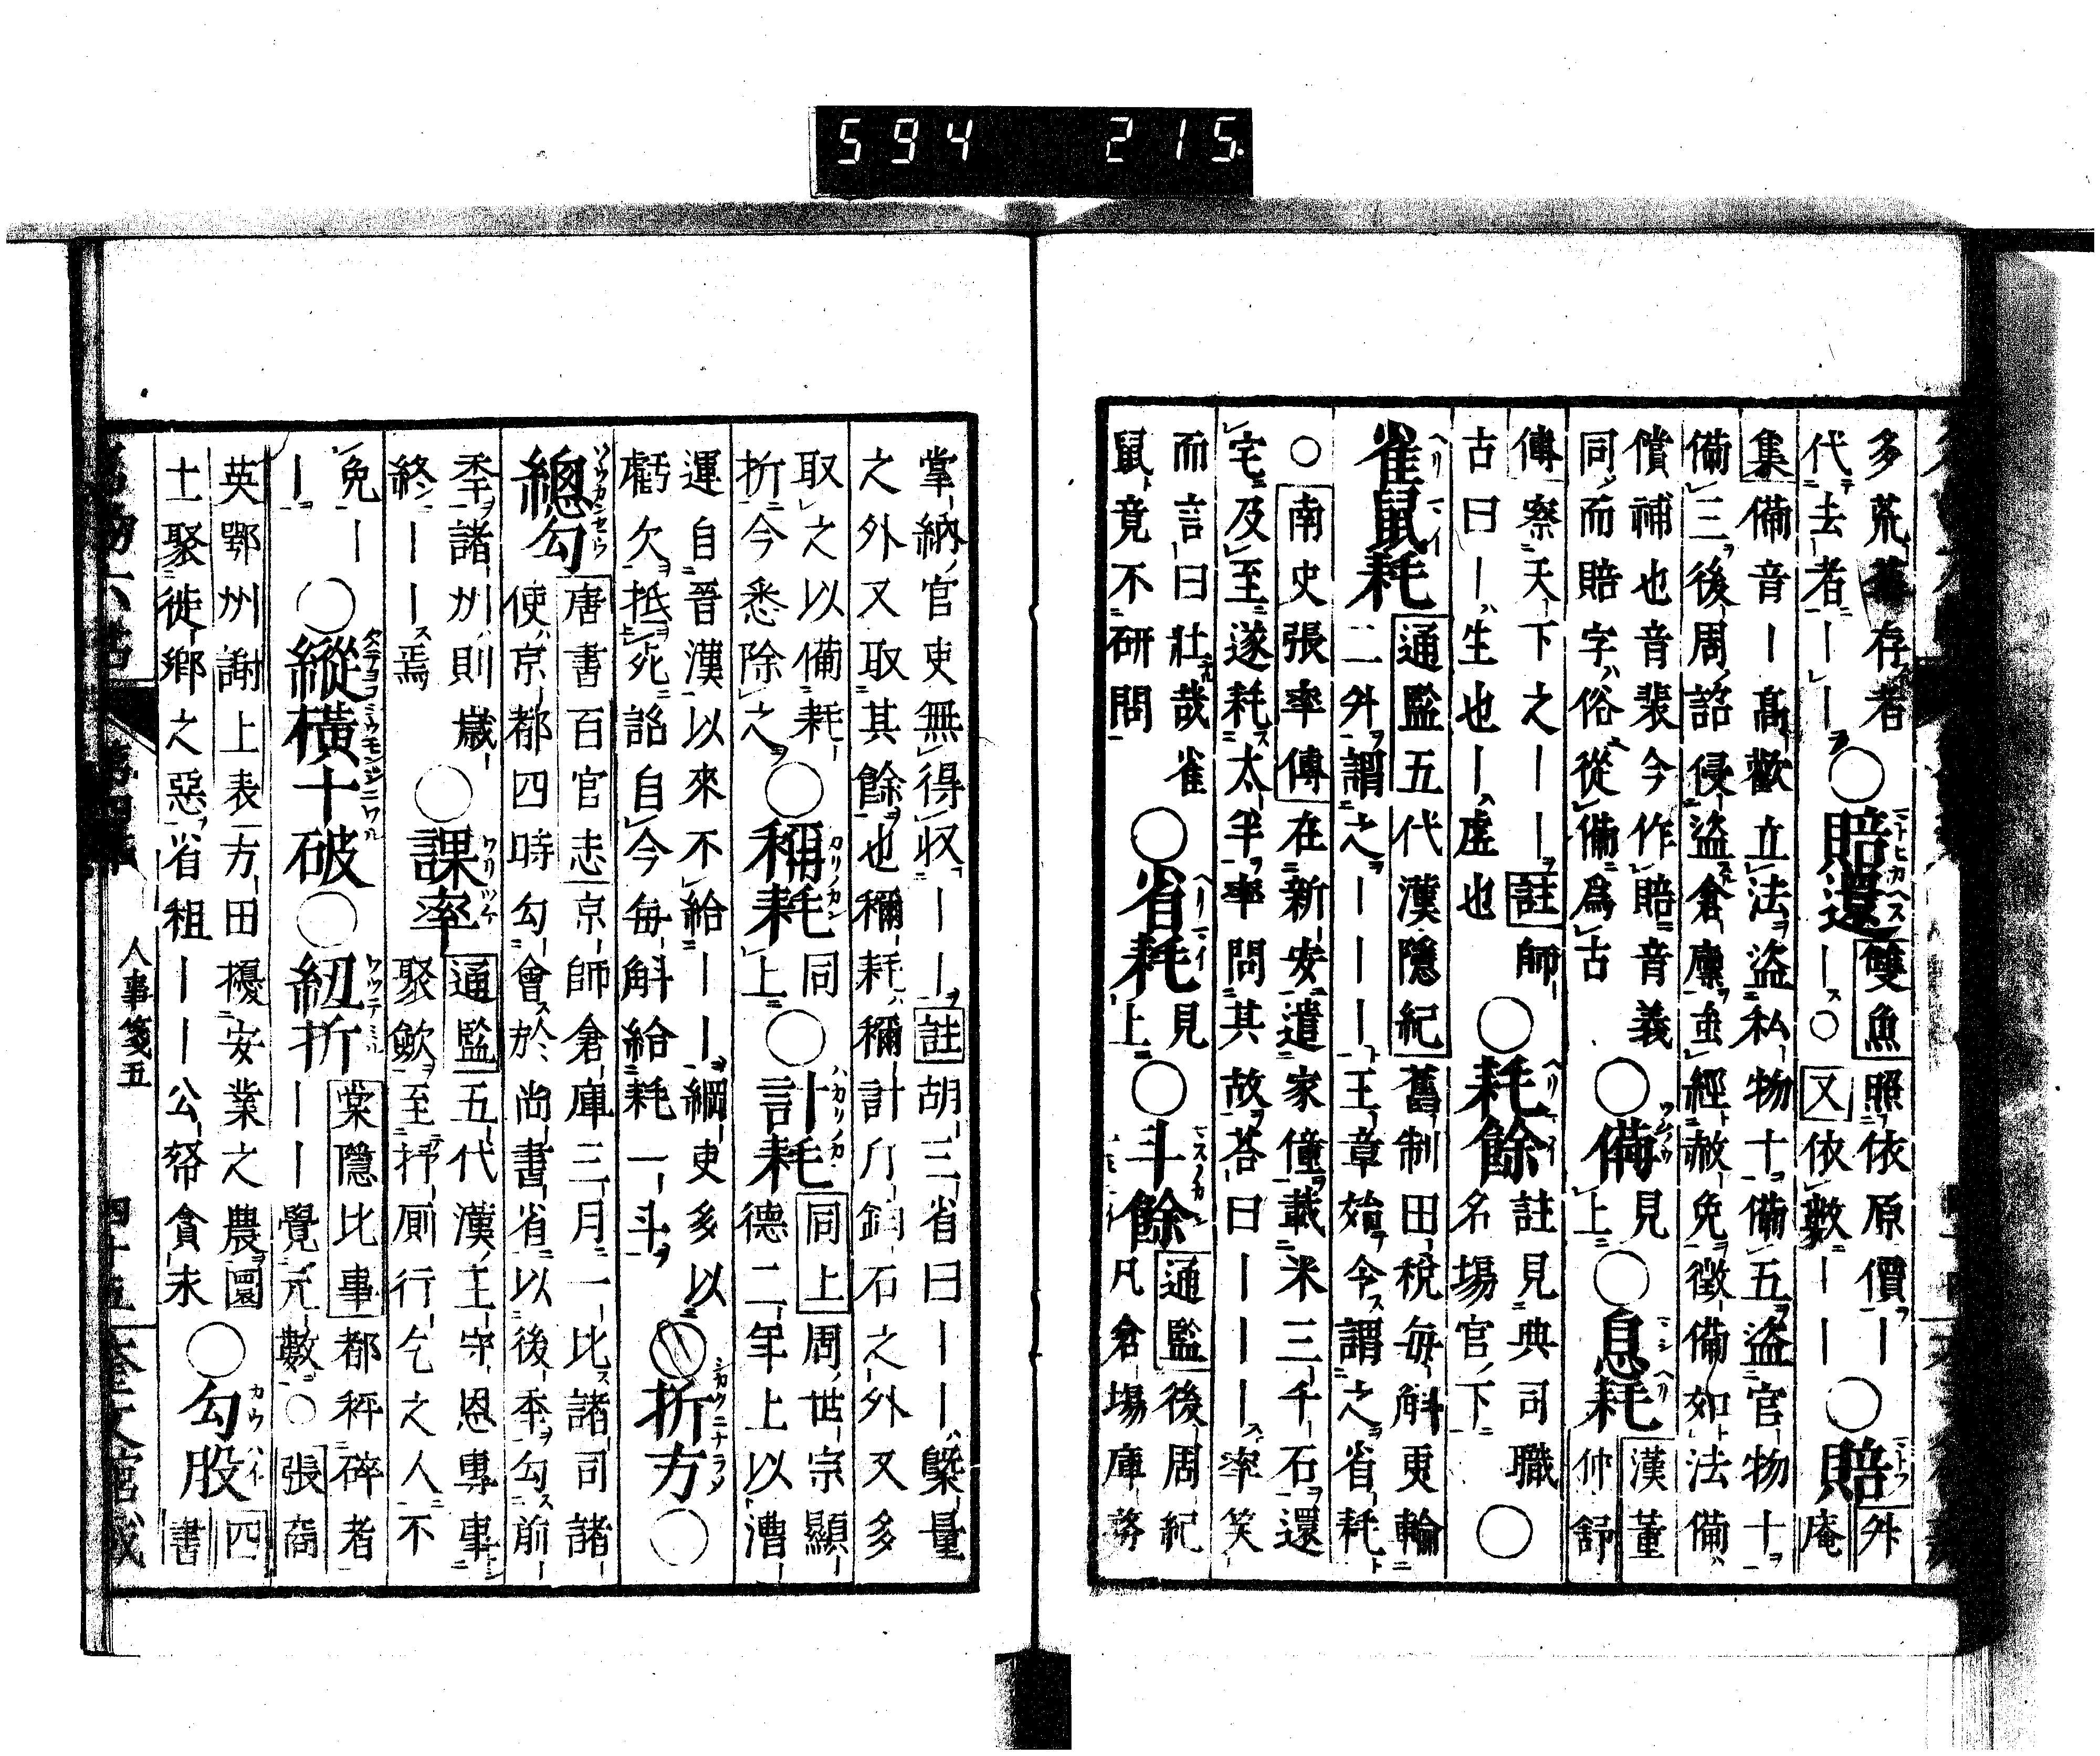 594 215
多荒蕪存者
代去者｜｜○賠還 雙魚照依原價｜○賠 外
｜｜○又依數｜｜ 庵
集備音｜高歡立法盜私物十備五盜官物十
備三後周詔侵盜倉廩並經赦免徵備如法備
償補也音裴今作賠音義
同而賠字俗從備為古○備 見上○息耗 漢董仲舒
傳察天下之｜｜註師
古曰｜生也｜虛也○耗餘 註見典司職名場官下○
雀鼠耗 通鑑五代漢隱紀舊制田稅每斛更輸
二升謂之｜｜｜王章始令謂之省耗
○南史張率傳在新安遣家僮載米三千石還
宅及至遂耗太半率問其故荅曰｜｜｜率笑
而言曰壯哉雀
鼠竟不研問○省耗 見上○斗餘 通鑑後周紀
凡倉場庫務
掌納官吏無得收｜｜註胡三省曰｜｜槩量
之外又取其餘也稱耗稱計斤鈞石之外又多
取之以備耗
折今悉除之○稱耗 同上○計耗 同上周世宗顯
德二年上以漕
運自晉漢以來不給｜｜綱吏多以
虧欠抵死詔自今每斛給耗一斗○折方○
總勾 唐書百官志京師倉庫三月一比諸司諸
使京都四時勾會於尚書省以後季勾前
季諸州則歲
終｜｜焉○課率 通鑑五代漢王守恩專事
聚歛至抒厠行乞之人不
免｜
｜○縱橫十破○紐折 棠隱比事都秤碎者
｜｜覺元數○張裔
英鄂州謝上表一方田擾安業之農園
土聚徒鄉之惡省租｜｜公帑貪未○勾股 四
書
人事箋五